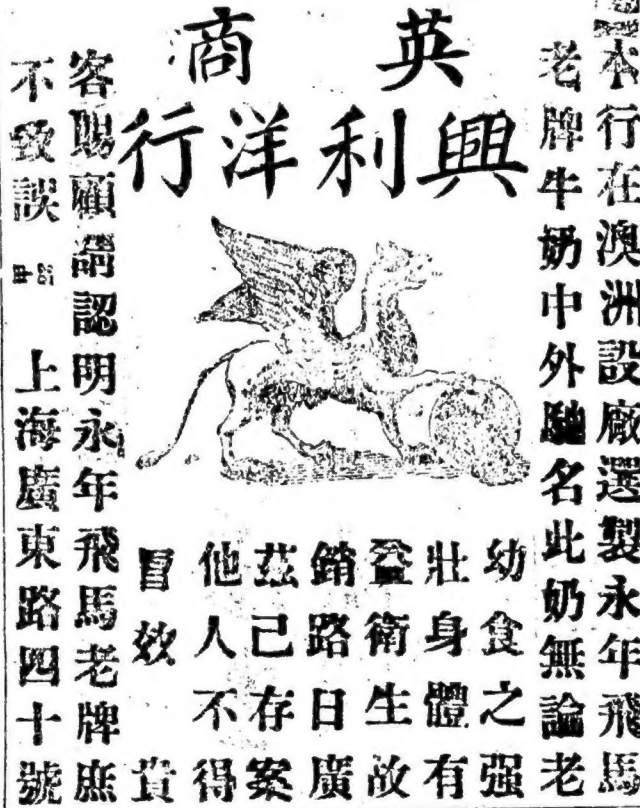 英商
興利洋行
本行在澳洲設廠選製永年飛馬
老牌牛奶中外馳名此奶無論老
幼食之强
壯身體有
益衛生故
銷路日廣
茲己存案
他人不得
冒效 貴
客賜顧請認明永年飛馬老牌庶
不致誤 上海廣東路四十號